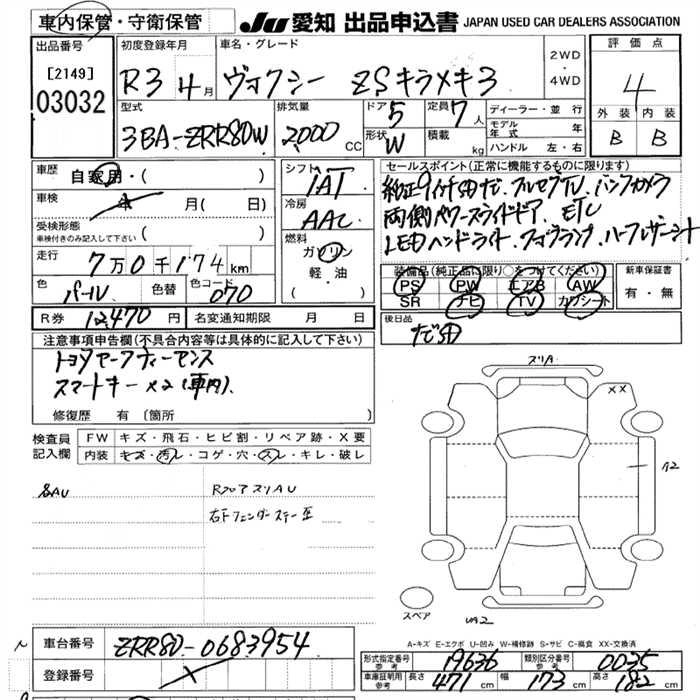 車内保管・守衛保管
JU 愛知 出品申込書 JAPAN USED CAR DEALERS ASSOCIATION
出品番号
[2149]
03032
初度登録年月
R3 4月
車名・グレード
ヴォクシー ZSキラメキ3
2WD
・
4WD
評価点
4
外装 内装
B B
型式
3BA-ZRR80W
排気量
2000 CC
ドア 5
形状 W
定員 7 人
積載 kg
ディーラー・並行
モデル年式 年
ハンドル 左・右
車歴 自家用・( )
車検 年 月( 日)
受検形態
車検付きのみ記入して下さい ( )
走行 7万0千174km
色 パール 色替 色コード 070
シフト
IAT
冷房
AAC
燃料
ガソリン
軽・油
( )
セールスポイント(正常に機能するものに限ります)
純正9インチナビ、フルセグTV、バックカメラ
両側パワースライドドア、ETC
LEDヘッドライト、フォグランプ、ハーフレザーシート
装備品(純正品に限り○をつけてください)
PS PW エアB AW
SR ナビ TV カワシート
新車保証書
有・無
後日品
R券 12,470円 名変通知期限 月 日
注意事項申告欄(不具合内容等は具体的に記入して下さい)
トヨタセーフティーセンス
スマートキー×2(車内)
修復歴 有 〔箇所 〕
検査員記入欄
FW キズ・飛石・ヒビ割・リペア跡・X要
内装 キズ・汚レ・コゲ・穴・スレ・キレ・破レ
RフロアスリAU
右Fフェンダーステー
スリA
XX
A2
スペア
A-キズ E-エクボ U-凹み W-補修跡 S-サビ C-腐食 XX-交換済
車台番号 ZRR80-0683954
登録番号
形式指定番号 参考 19636 類別区分番号 参考 0035
車庫証明用 参考 長さ 471cm 幅 173cm 高さ 182cm